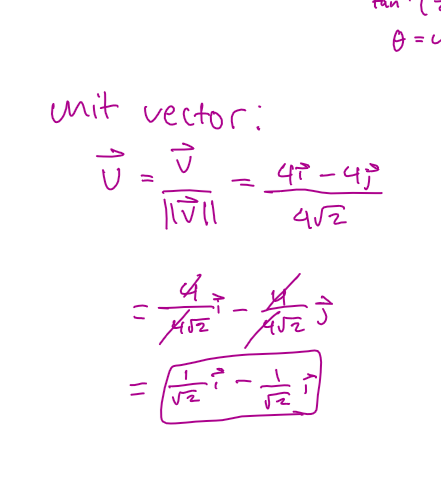 tan⁻¹(
θ =
unit vector:
v⃗ = v⃗ / ||v⃗|| = (4i⃗ − 4j⃗) / 4√2
= 4/(4√2) i⃗ − 4/(4√2) j⃗
= 1/√2 i⃗ − 1/√2 i⃗